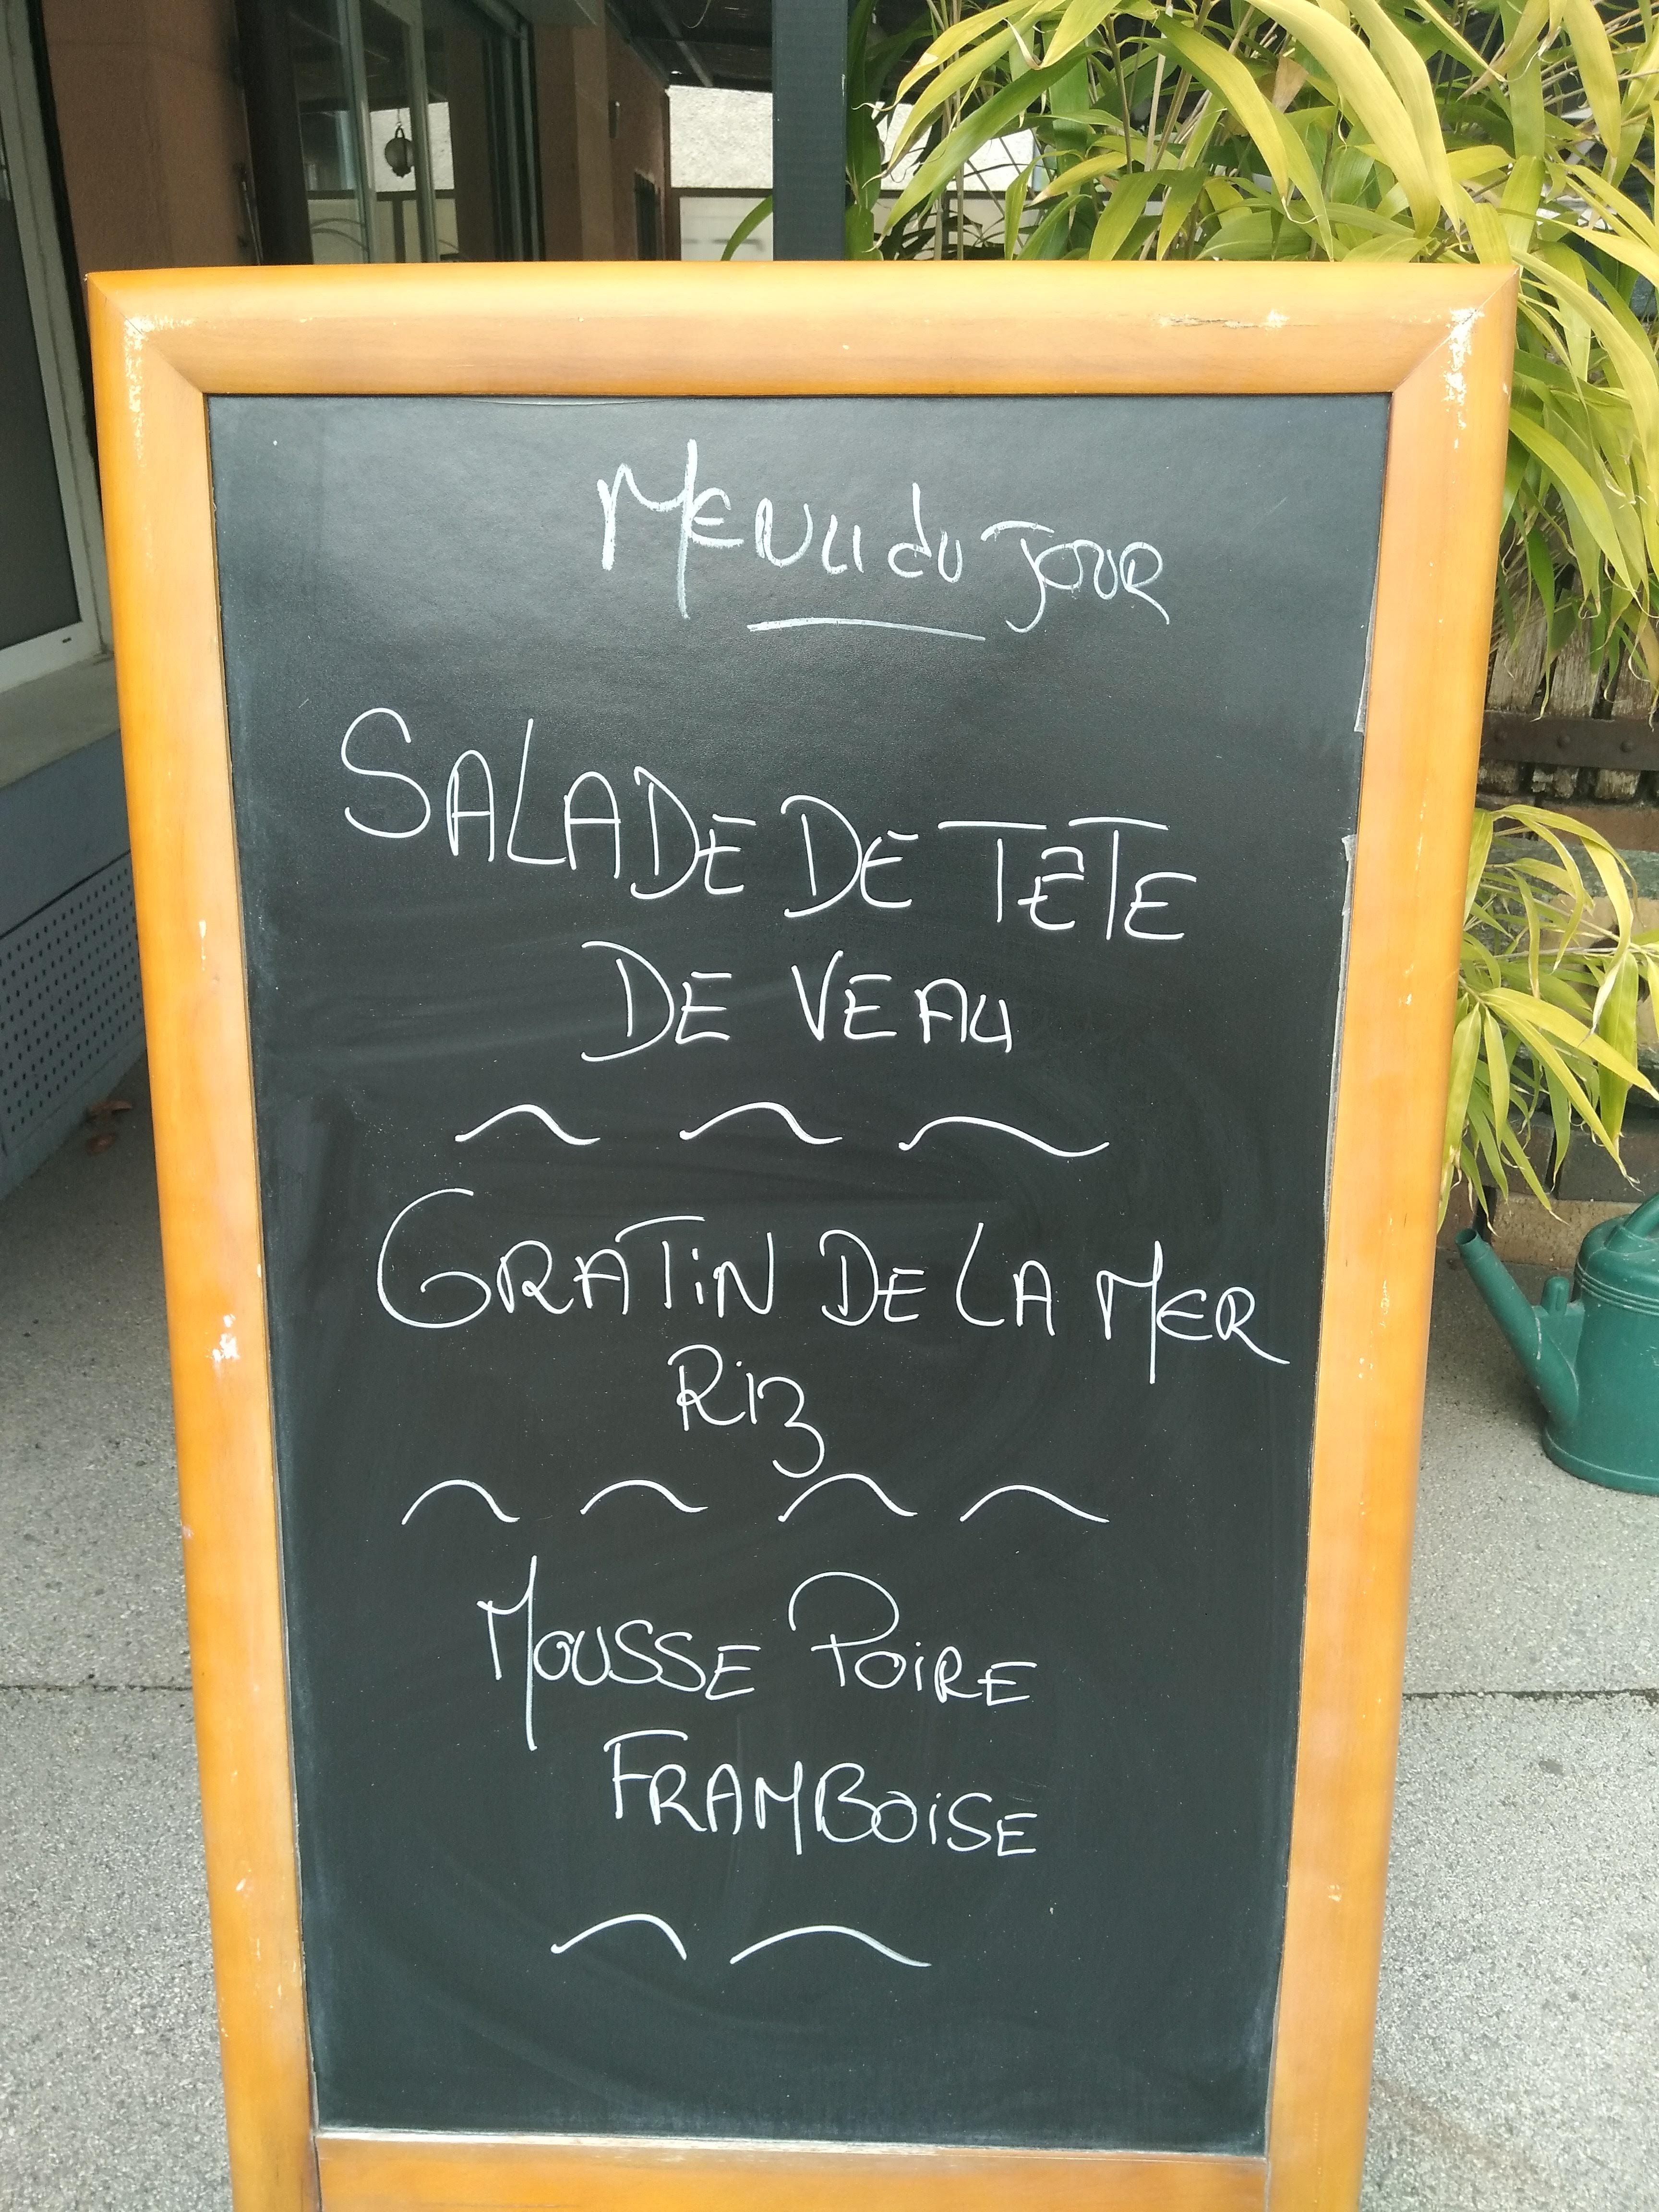 Menu du Jour
SALADE DE TÊTE
DE VEAU
~ ~ ~
GRATiN DE LA MER
Riz
~ ~ ~ ~
MOUSSE POiRE
FRAMBOiSE
~ ~